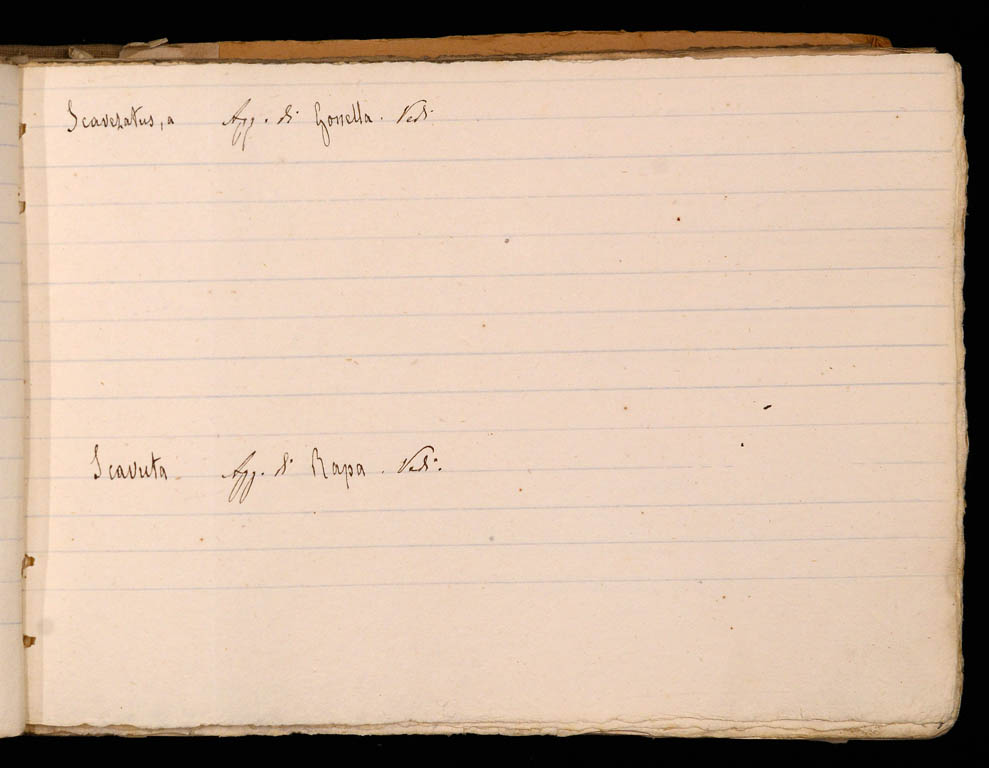 Scavezatus, a Agg. di Gonella. Vedi
Scavuta Agg. di Rapa. Vedi.